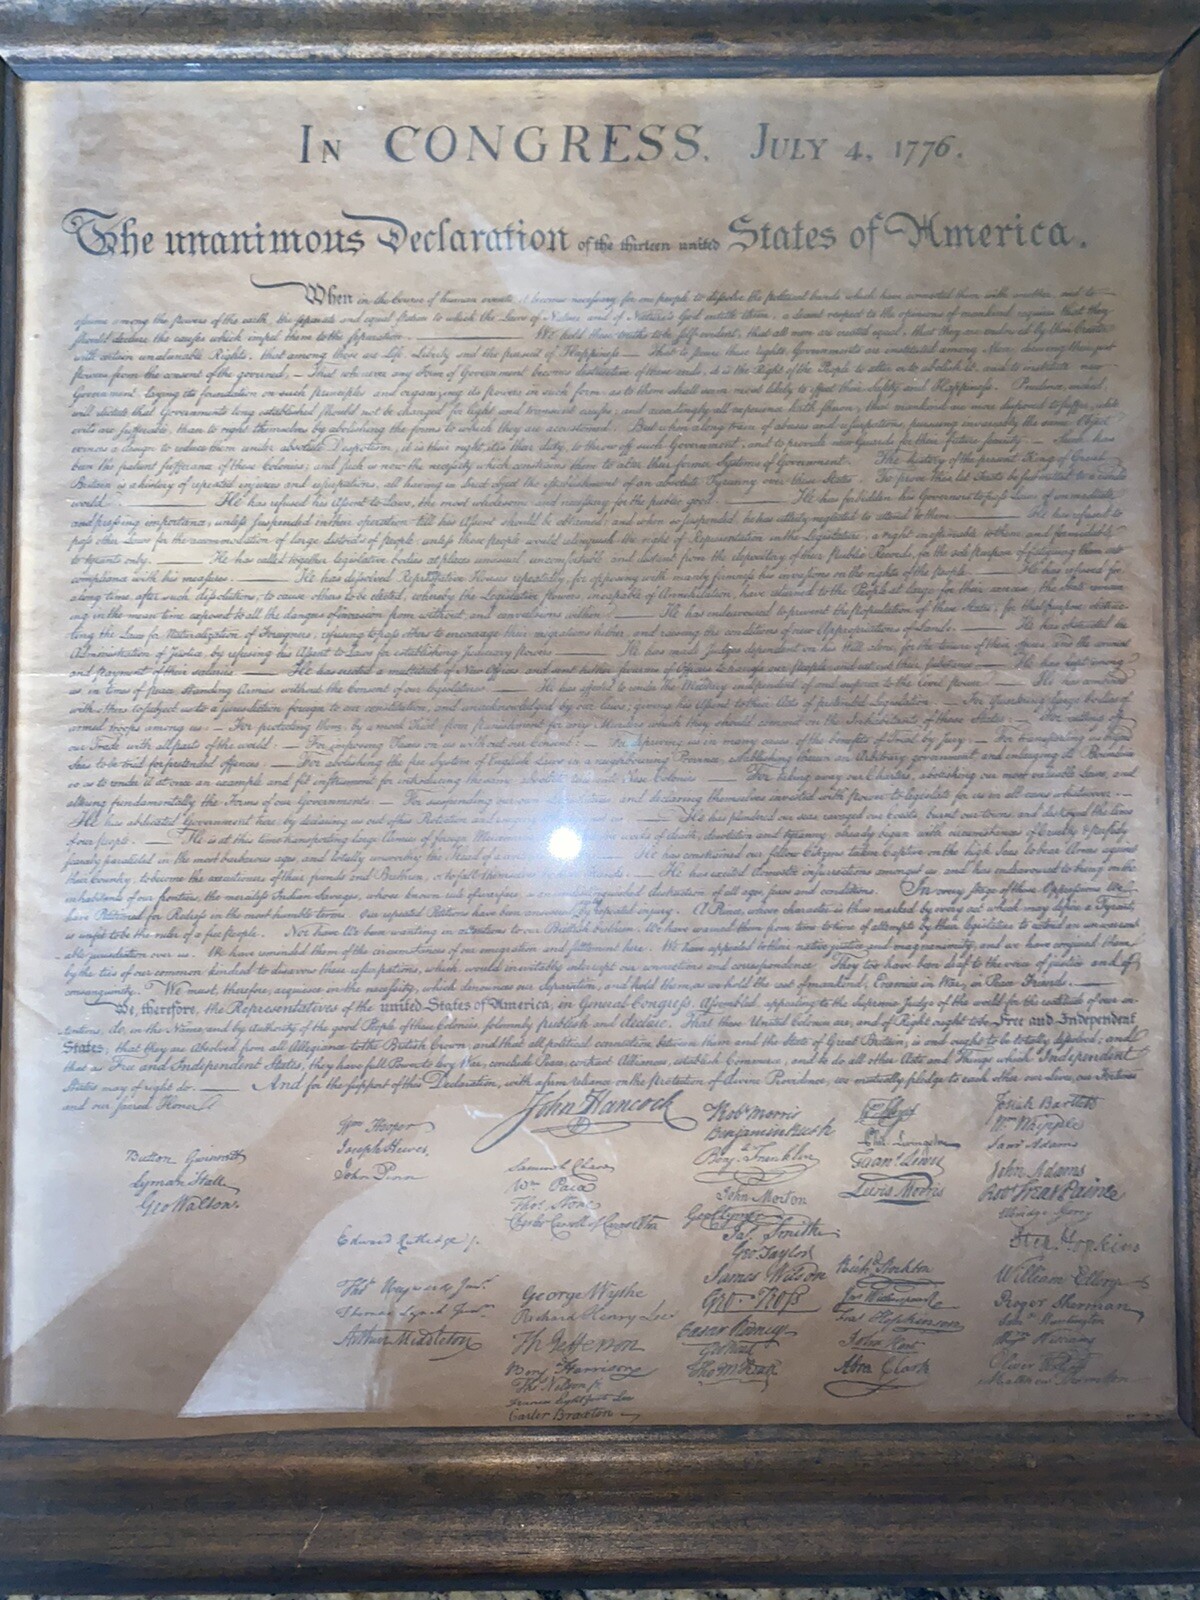 IN CONGRESS, JULY 4, 1776.
The unanimous Declaration of the thirteen united States of America.
When in the Course of human events, it becomes necessary for one people to dissolve the political bands which have connected them with another, and to
assume among the powers of the earth, the separate and equal station to which the Laws of Nature and of Nature's God entitle them, a decent respect to the opinions of mankind requires that they
should declare the causes which impel them to the separation. We hold these truths to be self-evident, that all men are created equal, that they are endowed by their Creator
with certain unalienable Rights, that among these are Life, Liberty and the pursuit of Happiness.— That to secure these rights, Governments are instituted among Men, deriving their just
powers from the consent of the governed,— That whenever any Form of Government becomes destructive of these ends, it is the Right of the People to alter or to abolish it, and to institute new
Government, laying its foundation on such principles and organizing its powers in such form, as to them shall seem most likely to effect their Safety and Happiness. Prudence, indeed,
will dictate that Governments long established should not be changed for light and transient causes; and accordingly all experience hath shewn, that mankind are more disposed to suffer, while
evils are sufferable, than to right themselves by abolishing the forms to which they are accustomed. But when a long train of abuses and usurpations, pursuing invariably the same Object
evinces a design to reduce them under absolute Despotism, it is their right, it is their duty, to throw off such Government, and to provide new Guards for their future security.— Such has
been the patient sufferance of these Colonies; and such is now the necessity which constrains them to alter their former Systems of Government. The history of the present King of Great
Britain is a history of repeated injuries and usurpations, all having in direct object the establishment of an absolute Tyranny over these States. To prove this, let Facts be submitted to a candid
world. He has refused his Assent to Laws, the most wholesome and necessary for the public good. He has forbidden his Governors to pass Laws of immediate
and pressing importance, unless suspended in their operation till his Assent should be obtained; and when so suspended, he has utterly neglected to attend to them. He has refused to
pass other Laws for the accommodation of large districts of people, unless those people would relinquish the right of Representation in the Legislature, a right inestimable to them and formidable
to tyrants only. He has called together legislative bodies at places unusual, uncomfortable, and distant from the depository of their Public Records, for the sole purpose of fatiguing them into
compliance with his measures. He has dissolved Representative Houses repeatedly, for opposing with manly firmness his invasions on the rights of the people. He has refused for
a long time, after such dissolutions, to cause others to be elected; whereby the Legislative powers, incapable of Annihilation, have returned to the People at large for their exercise; the State remain
ing in the mean time exposed to all the dangers of invasion from without, and convulsions within. He has endeavoured to prevent the population of these States; for that purpose obstruc
ting the Laws for Naturalization of Foreigners; refusing to pass others to encourage their migrations hither, and raising the conditions of new Appropriations of Lands. He has obstructed the
Administration of Justice, by refusing his Assent to Laws for establishing Judiciary powers. He has made Judges dependent on his Will alone, for the tenure of their offices, and the amount
and payment of their salaries. He has erected a multitude of New Offices, and sent hither swarms of Officers to harrass our people, and eat out their substance. He has kept among
us, in times of peace, Standing Armies without the Consent of our legislatures. He has affected to render the Military independent of and superior to the Civil power. He has combined
with others to subject us to a jurisdiction foreign to our constitution, and unacknowledged by our laws; giving his Assent to their Acts of pretended Legislation: For Quartering large bodies of
armed troops among us:— For protecting them, by a mock Trial, from punishment for any Murders which they should commit on the Inhabitants of these States:— For cutting off
our Trade with all parts of the world:— For imposing Taxes on us without our Consent:— For depriving us in many cases, of the benefits of Trial by Jury:— For transporting us beyond
Seas to be tried for pretended offences:— For abolishing the free System of English Laws in a neighbouring Province, establishing therein an Arbitrary government, and enlarging its Boundaries
so as to render it at once an example and fit instrument for introducing the same absolute rule into these Colonies:— For taking away our Charters, abolishing our most valuable Laws, and
altering fundamentally the Forms of our Governments:— For suspending our own Legislatures, and declaring themselves invested with power to legislate for us in all cases whatsoever.—
He has abdicated Government here, by declaring us out of his Protection and waging us. He has plundered our seas, ravaged our Coasts, burnt our towns, and destroyed the lives
of our people. He is at this time transporting large Armies of foreign works of death, desolation and tyranny, already begun with circumstances of Cruelty & perfidy
scarcely paralleled in the most barbarous ages, and totally unworthy the Head of a He has constrained our fellow Citizens taken Captive on the high Seas to bear Arms against
their Country, to become the executioners of their friends and Brethren, or to fall themselves Hands. He has excited domestic insurrections amongst us, and has endeavoured to bring on the
inhabitants of our frontiers, the merciless Indian Savages, whose known rule of warfare, is an undistinguished destruction of all ages, sexes and conditions. In every stage of these Oppressions We
have Petitioned for Redress in the most humble terms: Our repeated Petitions have been answered by repeated injury. A Prince, whose character is thus marked by every act which may define a Tyrant,
is unfit to be the ruler of a free people. Nor have We been wanting in attentions to our Brittish brethren. We have warned them from time to time of attempts by their legislature to extend an unwarrant
able jurisdiction over us. We have reminded them of the circumstances of our emigration and settlement here. We have appealed to their native justice and magnanimity, and we have conjured them
by the ties of our common kindred to disavow these usurpations, which, would inevitably interrupt our connections and correspondence. They too have been deaf to the voice of justice and of
consanguinity. We must, therefore, acquiesce in the necessity, which denounces our Separation, and hold them, as we hold the rest of mankind, Enemies in War, in Peace Friends.
We, therefore, the Representatives of the united States of America, in General Congress, Assembled, appealing to the Supreme Judge of the world for the rectitude of our in
tentions, do, in the Name, and by Authority of the good People of these Colonies, solemnly publish and declare, That these United Colonies are, and of Right ought to be Free and Independent
States; that they are Absolved from all Allegiance to the British Crown, and that all political connection between them and the State of Great Britain, is and ought to be totally dissolved; and
that as Free and Independent States, they have full Power to levy War, conclude Peace, contract Alliances, establish Commerce, and to do all other Acts and Things which Independent
States may of right do. And for the support of this Declaration, with a firm reliance on the protection of divine Providence, we mutually pledge to each other our Lives, our Fortunes
and our sacred Honor.
Button Gwinnett
Lyman Hall
Geo Walton.
Wm Hooper
Joseph Hewes,
John Penn
Edward Rutledge /.
Thos Heyward Junr.
Thomas Lynch Junr.
Arthur Middleton
John Hancock
Samuel Chase
Wm Paca
Thos Stone
Charles Carroll of Carrollton
George Wythe
Richard Henry Lee
Th Jefferson
Benj Harrison
Thos Nelson jr.
Francis Lightfoot Lee
Carter Braxton
Robt Morris
Benjamin Rush
Benj. Franklin
John Morton
Geo Clymer
Jas. Smith
Geo. Taylor
James Wilson
Geo. Ross
Caesar Rodney
Geo Read
Tho M:Kean
Wm Floyd
Phil. Livingston
Frans. Lewis
Lewis Morris
Richd. Stockton
Jno Witherspoon
Fras. Hopkinson
John Hart
Abra Clark
Josiah Bartlett
Wm. Whipple
Saml Adams
John Adams
Robt Treat Paine
Elbridge Gerry
Step. Hopkins
William Ellery
Roger Sherman
Saml Huntington
Wm Williams
Oliver Wolcott
Matthew Thornton